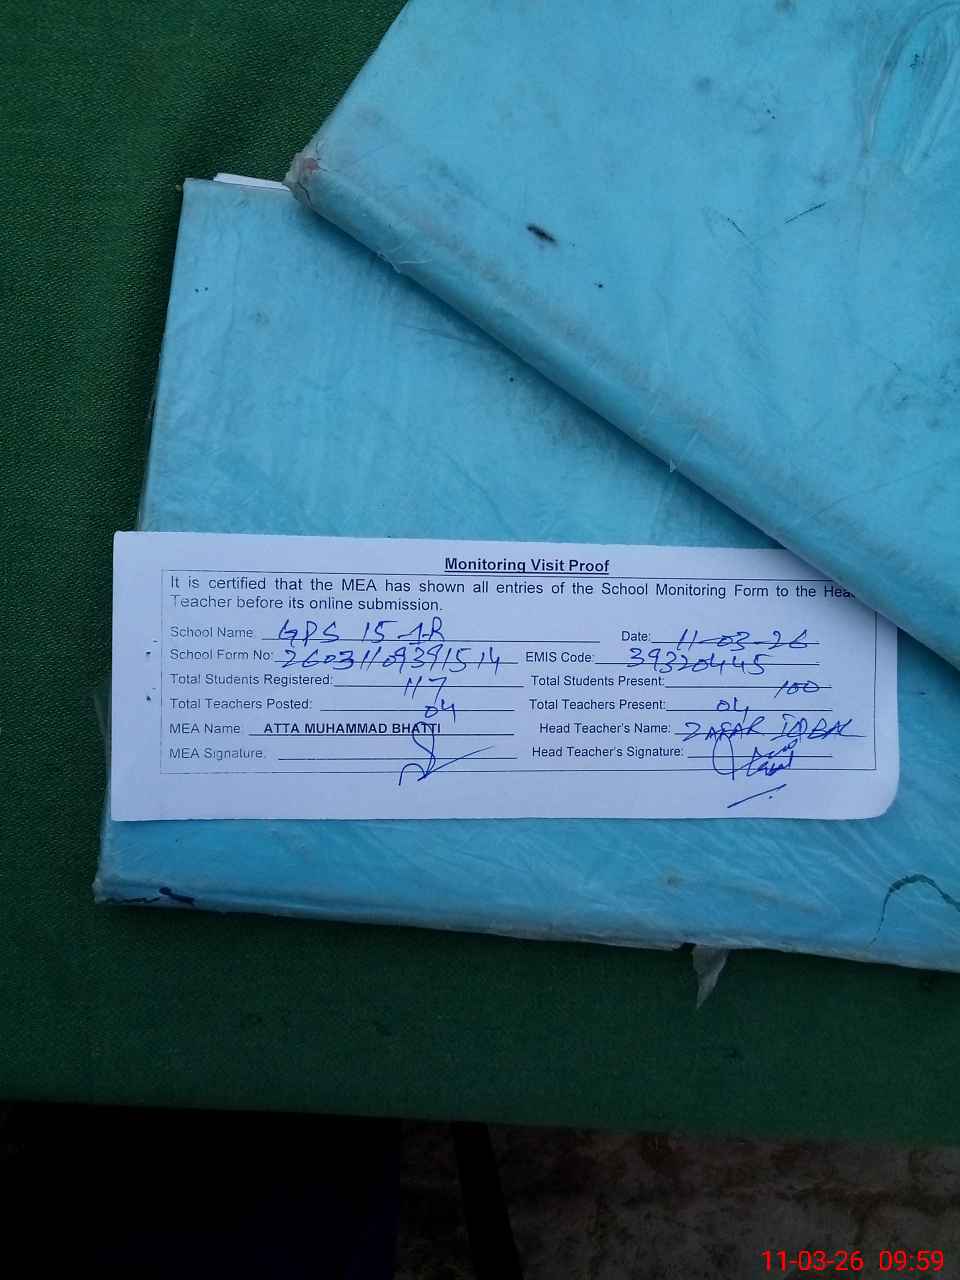 Monitoring Visit Proof
It is certified that the MEA has shown all entries of the School Monitoring Form to the Hea
Teacher before its online submission.
School Name: GPS 15-1R Date: 11-03-26
School Form No: 26031109391514 EMIS Code: 39320445
Total Students Registered: 117 Total Students Present: 100
Total Teachers Posted: 04 Total Teachers Present: 04
MEA Name: ATTA MUHAMMAD BHATTI Head Teacher's Name: ZAFAR IQBAL
MEA Signature: Head Teacher's Signature:
11-03-26 09:59